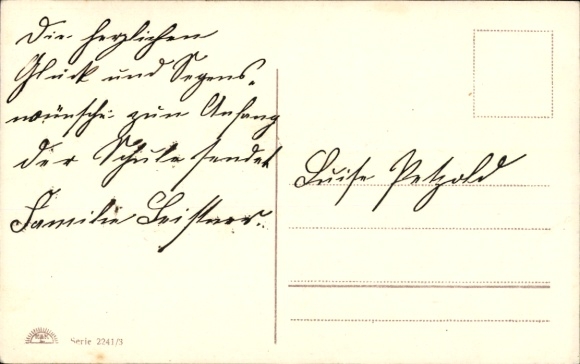 Die herzlichen
Glück und Segens-
wünsche zum Anfang
der Schule sendet
Familie Leistner.
Luise Petzold
Serie 2241/3